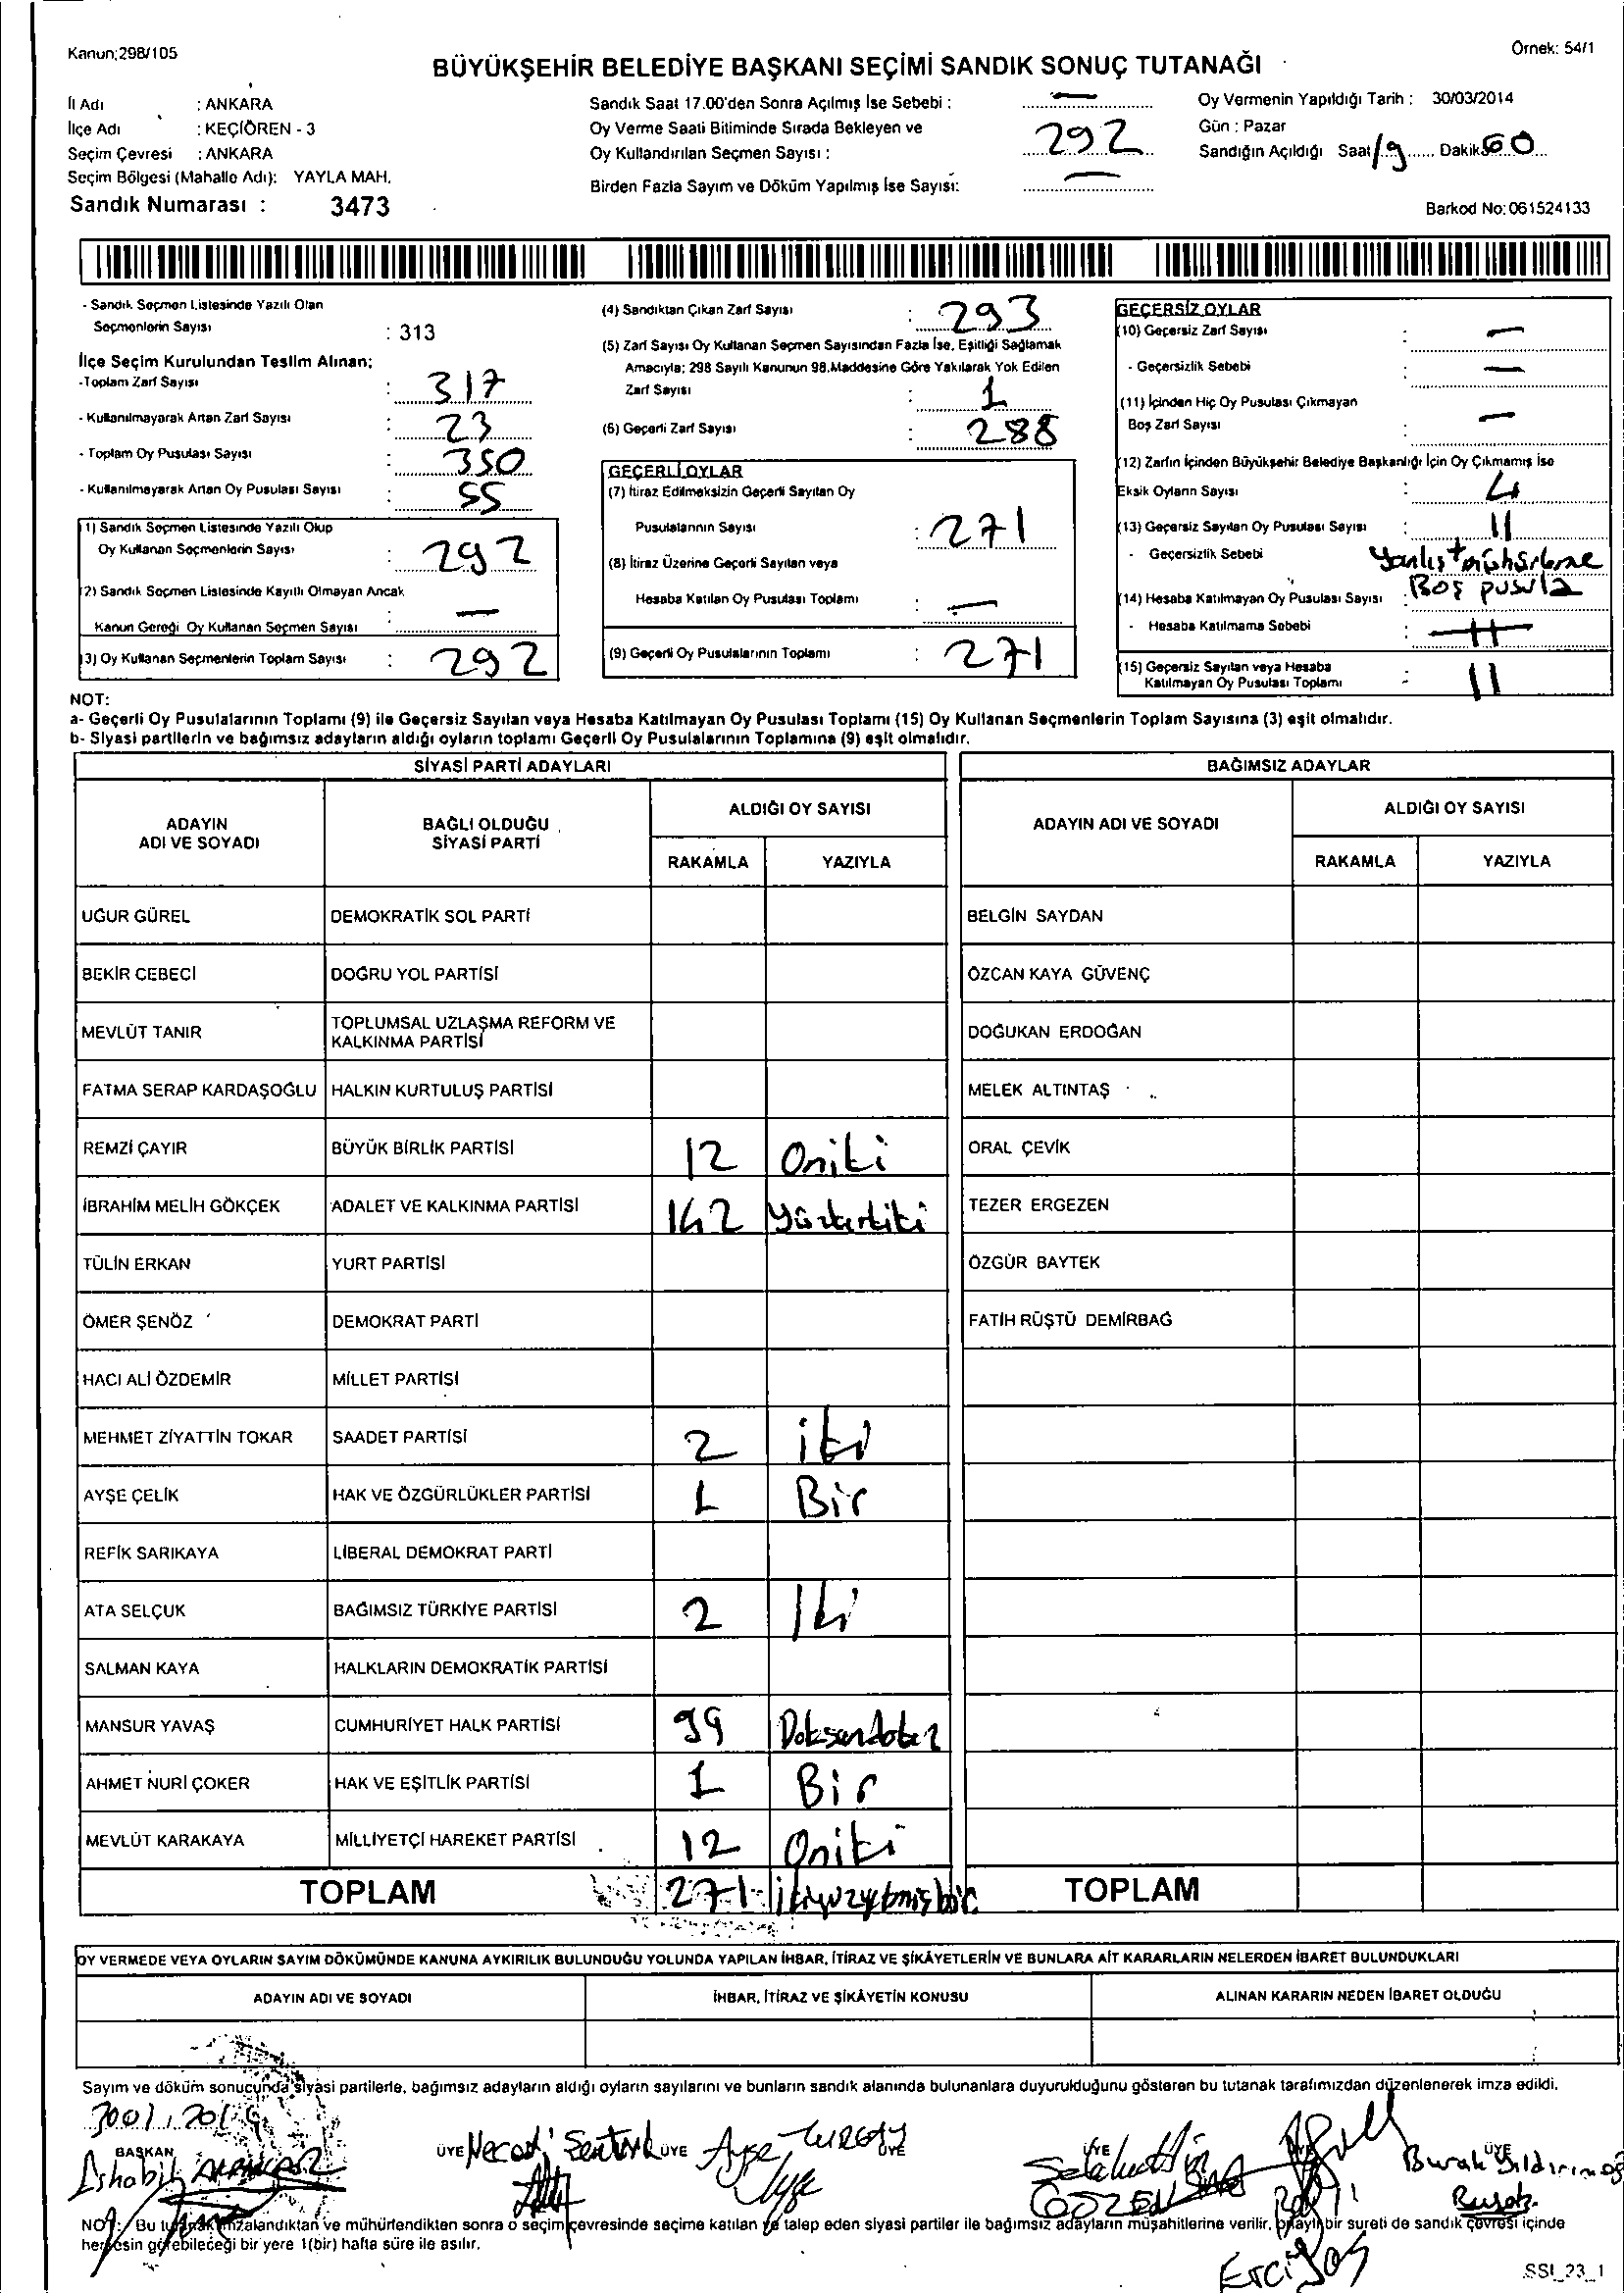 Kanun:298/105
Örnek: 54/1
BÜYÜKŞEHİR BELEDİYE BAŞKANI SEÇİMİ SANDIK SONUÇ TUTANAĞI
İl Adı : ANKARA
İlçe Adı : KEÇİÖREN - 3
Seçim Çevresi : ANKARA
Seçim Bölgesi (Mahalle Adı): YAYLA MAH.
Sandık Numarası : 3473
Sandık Saat 17.00'den Sonra Açılmış İse Sebebi : —
Oy Verme Saati Bitiminde Sırada Bekleyen ve
Oy Kullandırılan Seçmen Sayısı : 292
Birden Fazla Sayım ve Döküm Yapılmış İse Sayısı: —
Oy Vermenin Yapıldığı Tarih : 30/03/2014
Gün : Pazar
Sandığın Açıldığı Saat 19 Dakik 60
Barkod No:061524133
- Sandık Seçmen Listesinde Yazılı Olan
Seçmenlerin Sayısı : 313
İlçe Seçim Kurulundan Teslim Alınan:
-Toplam Zarf Sayısı : 317
- Kullanılmayarak Artan Zarf Sayısı : 23
- Toplam Oy Pusulası Sayısı : 350
- Kullanılmayarak Artan Oy Pusulası Sayısı : 55
1) Sandık Seçmen Listesinde Yazılı Olup
Oy Kullanan Seçmenlerin Sayısı : 292
(2) Sandık Seçmen Listesinde Kayıtlı Olmayan Ancak
Kanun Gereği Oy Kullanan Seçmen Sayısı : —
(3) Oy Kullanan Seçmenlerin Toplam Sayısı : 292
(4) Sandıktan Çıkan Zarf Sayısı : 293
(5) Zarf Sayısı Oy Kullanan Seçmen Sayısından Fazla İse, Eşitliği Sağlamak
Amacıyla; 298 Sayılı Kanunun 98.Maddesine Göre Yakılarak Yok Edilen
Zarf Sayısı : 1
(6) Geçerli Zarf Sayısı : 288
GEÇERLİ OYLAR
(7) İtiraz Edilmeksizin Geçerli Sayılan Oy
Pusulalarının Sayısı : 271
(8) İtiraz Üzerine Geçerli Sayılan veya
Hesaba Katılan Oy Pusulası Toplamı : —
(9) Geçerli Oy Pusulalarının Toplamı : 271
GEÇERSİZ OYLAR
(10) Geçersiz Zarf Sayısı : —
- Geçersizlik Sebebi : —
(11) İçinden Hiç Oy Pusulası Çıkmayan
Boş Zarf Sayısı : —
(12) Zarfın İçinden Büyükşehir Belediye Başkanlığı İçin Oy Çıkmamış İse
Eksik Oyların Sayısı : 4
(13) Geçersiz Sayılan Oy Pusulası Sayısı : 11
- Geçersizlik Sebebi Yanlış mühürleme
Boş pusula
(14) Hesaba Katılmayan Oy Pusulası Sayısı :
- Hesaba Katılmama Sebebi :
(15) Geçersiz Sayılan veya Hesaba
Katılmayan Oy Pusulası Toplamı : 11
NOT:
a- Geçerli Oy Pusulalarının Toplamı (9) ile Geçersiz Sayılan veya Hesaba Katılmayan Oy Pusulası Toplamı (15) Oy Kullanan Seçmenlerin Toplam Sayısına (3) eşit olmalıdır.
b- Siyasi partilerin ve bağımsız adayların aldığı oyların toplamı Geçerli Oy Pusulalarının Toplamına (9) eşit olmalıdır.
SİYASİ PARTİ ADAYLARI BAĞIMSIZ ADAYLAR
ADAYIN ADI VE SOYADI BAĞLI OLDUĞU SİYASİ PARTİ ALDIĞI OY SAYISI RAKAMLA YAZIYLA ADAYIN ADI VE SOYADI ALDIĞI OY SAYISI RAKAMLA YAZIYLA
UĞUR GÜREL DEMOKRATİK SOL PARTİ BELGİN SAYDAN
BEKİR CEBECİ DOĞRU YOL PARTİSİ ÖZCAN KAYA GÜVENÇ
MEVLÜT TANIR TOPLUMSAL UZLAŞMA REFORM VE KALKINMA PARTİSİ DOĞUKAN ERDOĞAN
FATMA SERAP KARDAŞOĞLU HALKIN KURTULUŞ PARTİSİ MELEK ALTINTAŞ
REMZİ ÇAYIR BÜYÜK BİRLİK PARTİSİ 12 Oniki ORAL ÇEVİK
İBRAHİM MELİH GÖKÇEK ADALET VE KALKINMA PARTİSİ 142 Yüzkırkiki TEZER ERGEZEN
TÜLİN ERKAN YURT PARTİSİ ÖZGÜR BAYTEK
ÖMER ŞENÖZ DEMOKRAT PARTİ FATİH RÜŞTÜ DEMİRBAĞ
HACI ALİ ÖZDEMİR MİLLET PARTİSİ
MEHMET ZİYATTİN TOKAR SAADET PARTİSİ 2 iki
AYŞE ÇELİK HAK VE ÖZGÜRLÜKLER PARTİSİ 1 Bir
REFİK SARIKAYA LİBERAL DEMOKRAT PARTİ
ATA SELÇUK BAĞIMSIZ TÜRKİYE PARTİSİ 2 İki
SALMAN KAYA HALKLARIN DEMOKRATİK PARTİSİ
MANSUR YAVAŞ CUMHURİYET HALK PARTİSİ 99 Doksandokuz
AHMET NURİ ÇOKER HAK VE EŞİTLİK PARTİSİ 1 Bir
MEVLÜT KARAKAYA MİLLİYETÇİ HAREKET PARTİSİ 12 Oniki
TOPLAM 271 ikiyüzyetmişbir TOPLAM
OY VERMEDE VEYA OYLARIN SAYIM DÖKÜMÜNDE KANUNA AYKIRILIK BULUNDUĞU YOLUNDA YAPILAN İHBAR, İTİRAZ VE ŞİKÂYETLERİN VE BUNLARA AİT KARARLARIN NELERDEN İBARET BULUNDUKLARI
ADAYIN ADI VE SOYADI İHBAR, İTİRAZ VE ŞİKÂYETİN KONUSU ALINAN KARARIN NEDEN İBARET OLDUĞU
Sayım ve döküm sonucunda siyasi partilerle, bağımsız adayların aldığı oyların sayılarını ve bunların sandık alanında bulunanlara duyurulduğunu gösteren bu tutanak tarafımızdan düzenlenerek imza edildi.
BAŞKAN ÜYE Necati Şentürk ÜYE Ayşe ÜYE ÜYE Selahattin GÖZEN ÜYE Burak Yıldırım
NOT: Bu tutanak imzalandıktan ve mühürlendikten sonra o seçim çevresinde seçime katılan ve talep eden siyasi partiler ile bağımsız adayların müşahitlerine verilir, onaylı bir sureti de sandık çevresi içinde
herkesin görebileceği bir yere 1(bir) hafta süre ile asılır.
SSI_23_1